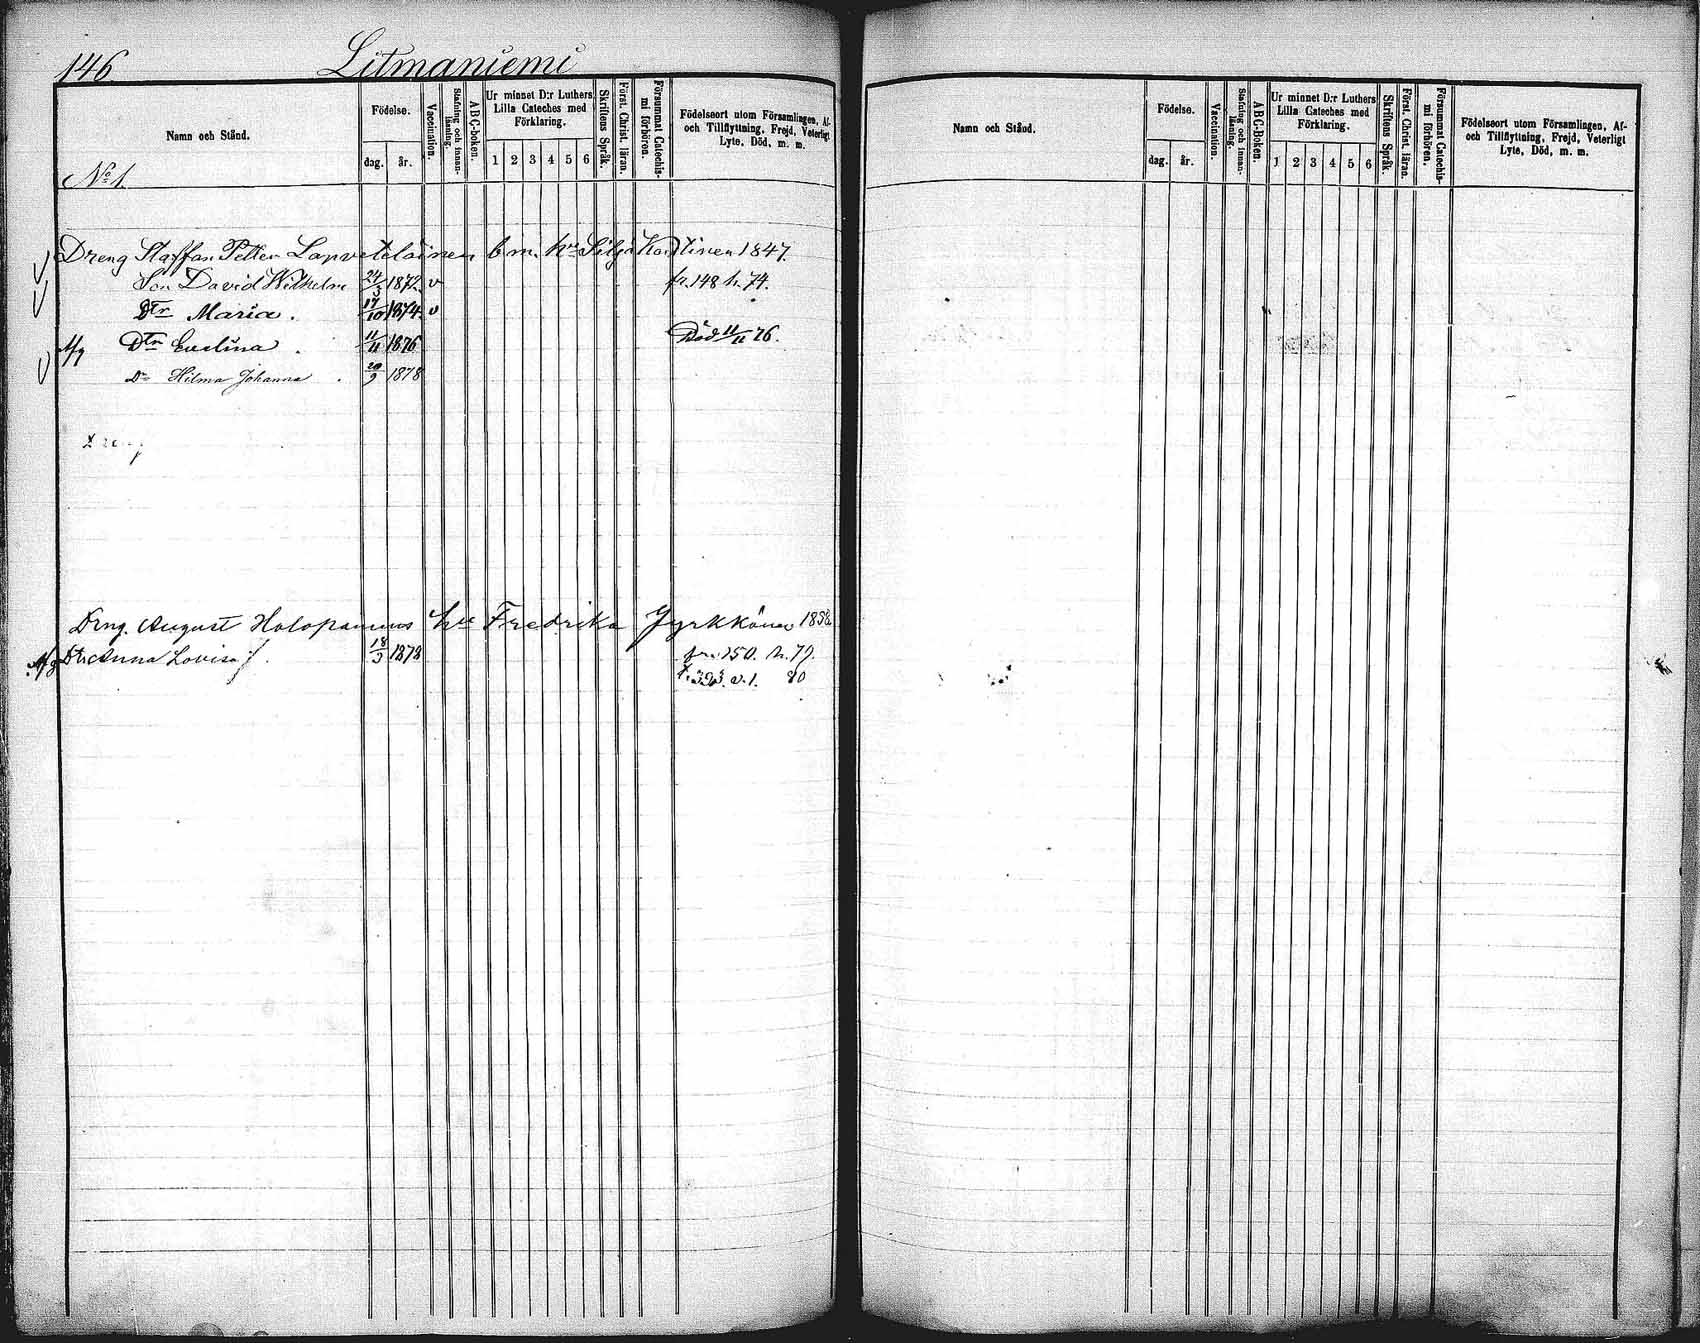 146
Litmaniemi
Namn och Stånd.
Födelse.
dag. år.
Vaccination.
Stafning och innan-läsning.
ABC-boken.
Ur minnet D:r Luthers
Lilla Cateches med
Förklaring.
1 2 3 4 5 6
Skriftens Språk.
Först. Christ. läran.
Försummat Catechis-mi förhören.
Födelseort utom Församlingen, Af-
och Tillflyttning, Frejd, Veterligt
Lyte, Död, m. m.
No 1.
Dreng Staffan Petter Lapveteläinen b.m. hu Silja Kortinen 1847.
Son David Wilhelm 24/3 1872. v fr. 148 h. 74.
Dtr Maria. 17/10 1874. v
Afg Dtr Evelina 11/11 1876 Död 11/11 76.
Dr Hilma Johanna 20/9 1878
Dreng
Dreng. August Holopainus hu Fredrika Jyrkkänen
Afg Dtr Anna Lovisa 18/3 1878 fr. 150. h. 79.
80
Namn och Stånd.
Födelse.
dag. år.
Vaccination.
Stafning och innan-läsning.
ABC-boken.
Ur minnet D:r Luthers
Lilla Cateches med
Förklaring.
1 2 3 4 5 6
Skriftens Språk.
Först. Christ. läran.
Försummat Catechis-mi förhören.
Födelseort utom Församlingen, Af-
och Tillflyttning, Frejd, Veterligt
Lyte, Död, m. m.